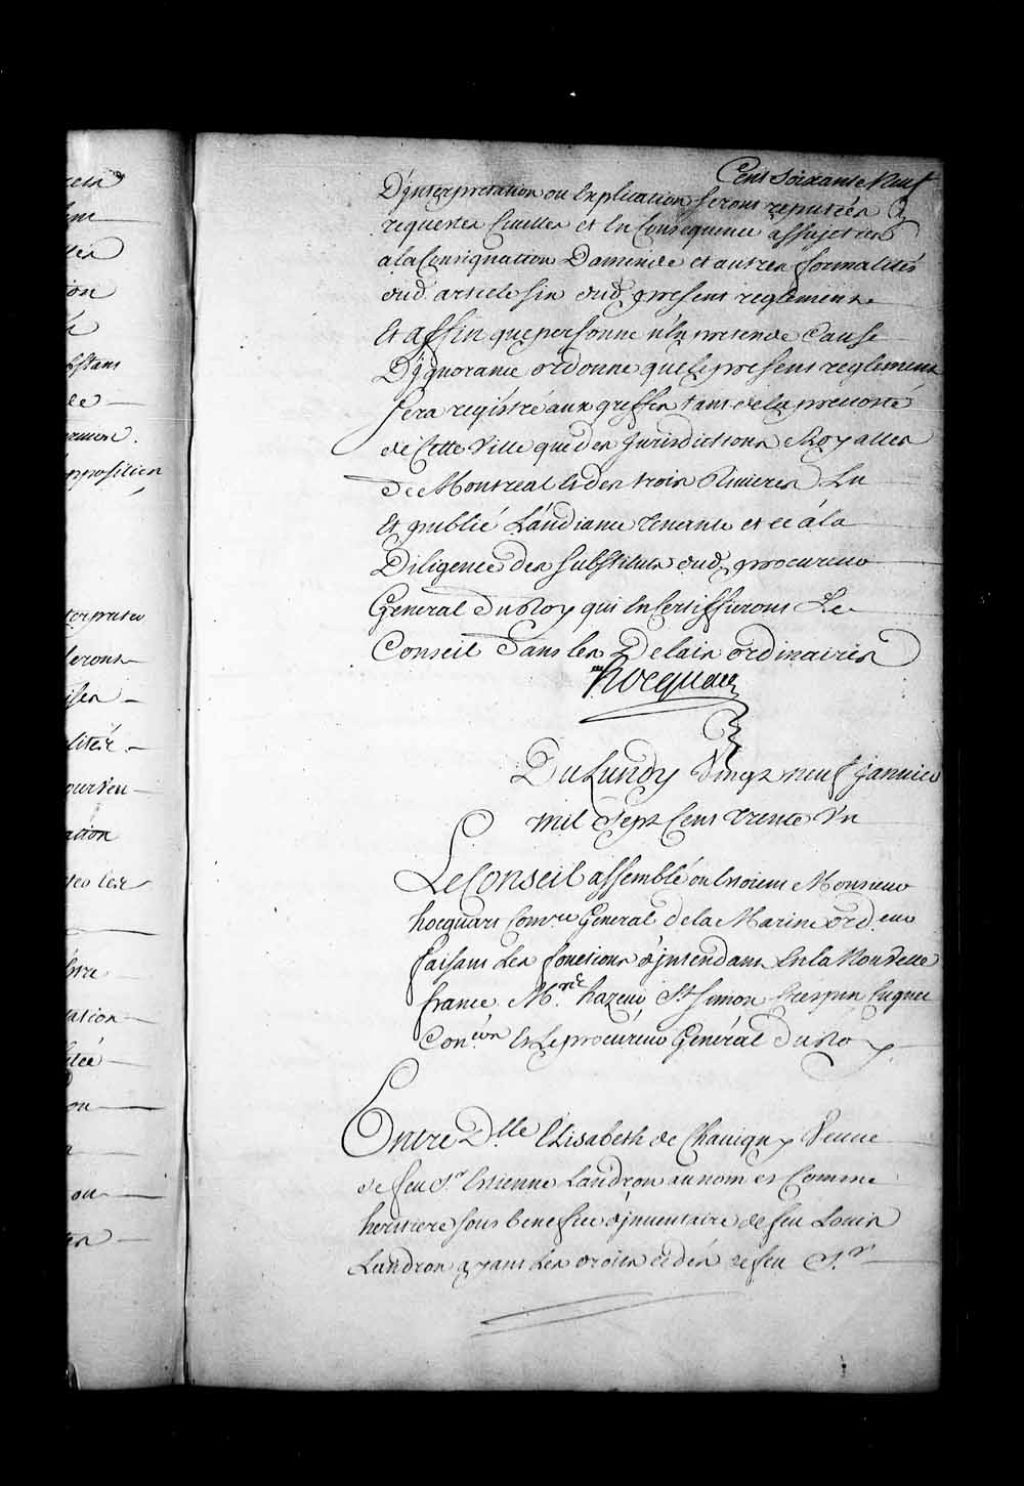 Cent Soixante Neuf
D'ynterpretation ou Explication seront reputées
requestes Civilles et En Consequence assujetties
a la Consignation D'amende et autres formalités
dud. article six dud. present reglement
Et affin que personne n'En pretende Cause
D'ygnorance ordonne que le present reglement
sera registré aux greffes tant de la prevosté
de Cette Ville que des Jurisdictions Royalles
de Montreal et des trois Rivieres Lu
Et publié L'audiance tenante et ce a la
Diligence des substituts dud. procureur
General du Roy qui En Certiffiront Le
Conseil dans les Delais ordinaires
hocquart
Du Lundy Vingt neuf Janvier
mil Sept Cent trente Un
Le Conseil assemblé ou Etoient Monsieur
hocquart Comre General de la Marine ord.eur
faisant Les fonctions d'jntendant En la Nouvelle
france M.re hazeur St Simon Crespin Cugnet
Con.ers Et Le procureur General du Roy
Entre D.lle Elisabeth de Chavigny Veuve
de feu S.r Estienne Landron au nom et Comme
heritiere sous benefice d'jnventaire de feu Louis
Landron ayant Les droits cedés de feu S.r
terpreter
seront
alité
pourveu
ation
opposition